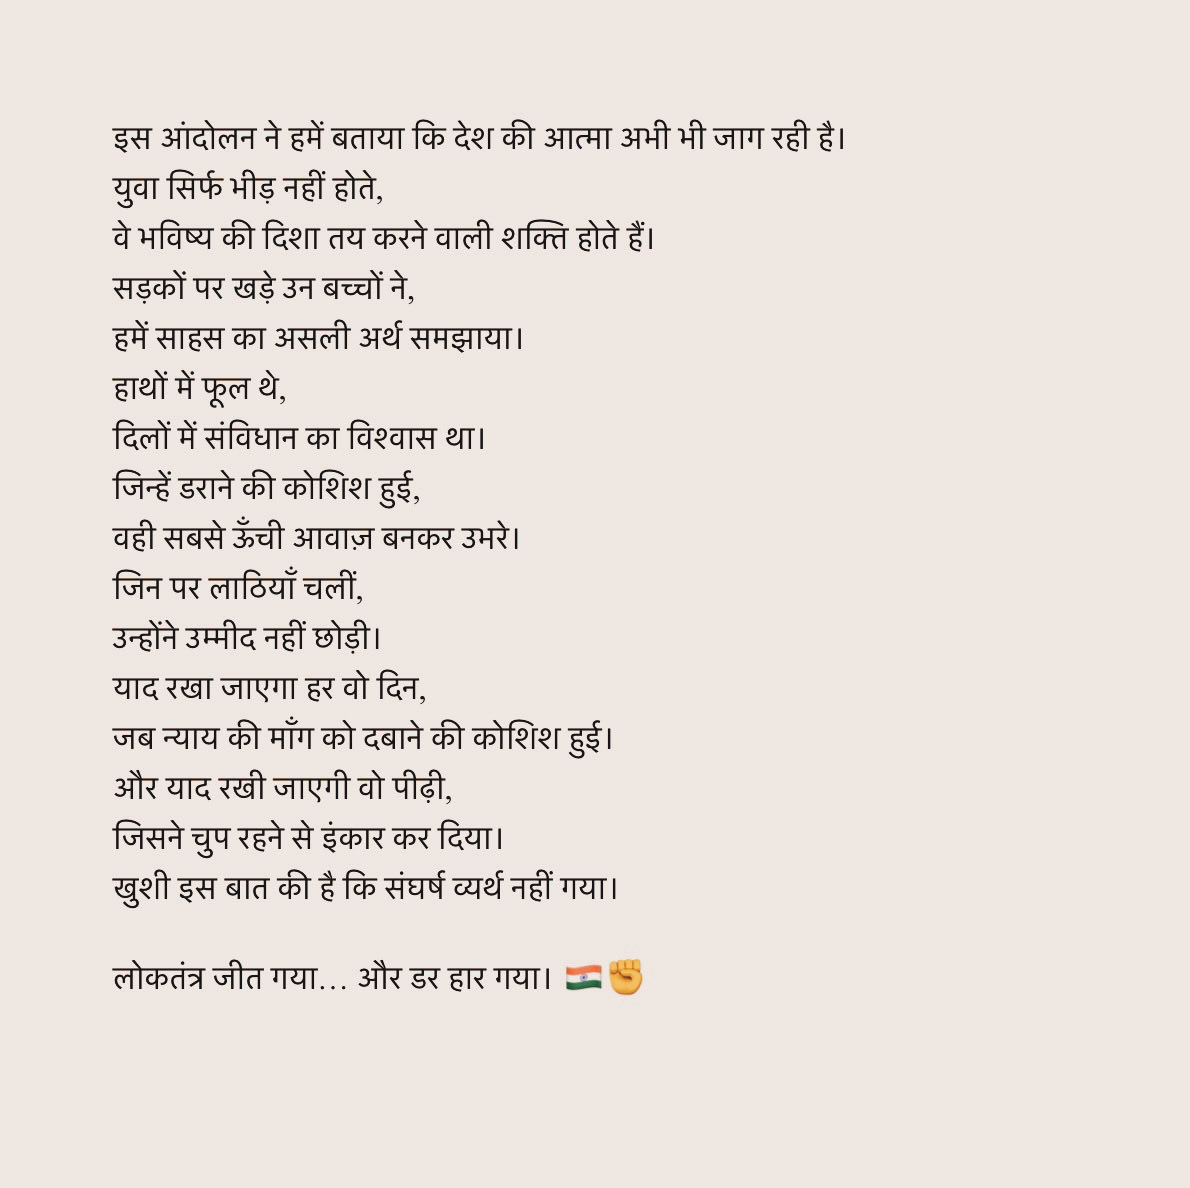 इस आंदोलन ने हमें बताया कि देश की आत्मा अभी भी जाग रही है।
युवा सिर्फ भीड़ नहीं होते,
वे भविष्य की दिशा तय करने वाली शक्ति होते हैं।
सड़कों पर खड़े उन बच्चों ने,
हमें साहस का असली अर्थ समझाया।
हाथों में फूल थे,
दिलों में संविधान का विश्वास था।
जिन्हें डराने की कोशिश हुई,
वही सबसे ऊँची आवाज़ बनकर उभरे।
जिन पर लाठियाँ चलीं,
उन्होंने उम्मीद नहीं छोड़ी।
याद रखा जाएगा हर वो दिन,
जब न्याय की माँग को दबाने की कोशिश हुई।
और याद रखी जाएगी वो पीढ़ी,
जिसने चुप रहने से इंकार कर दिया।
खुशी इस बात की है कि संघर्ष व्यर्थ नहीं गया।
लोकतंत्र जीत गया... और डर हार गया। 🇮🇳✊